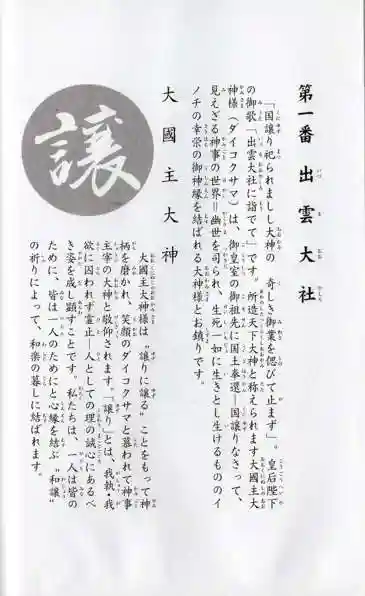 第一番 出雲大社
「国譲り祀られまし大神の 奇しき御業を偲びて止まず」。皇后陛下
の御歌「出雲大社に詣でて」です。所造天下大神と称えられます大國主大
神様（ダイコクサマ）は、御皇室の御祖先に国土奉還＝国譲りなさって、
見えざる神事の世界＝幽世を司られ、生死一如に生きとし生けるもののイ
ノチの幸栄の御神縁を結ばれる大神様とお鎮りです。
大國主大神
大國主大神様は〝譲りに譲る〟ことをもって神
柄を磨かれ、笑顔のダイコクサマと慕われて神事
主宰の大神と敬仰されます。「譲り」とは、我執・我
欲に囚われず霊止―人としての理の誠心にあるべ
き姿を成し顕すことです。私たちは、一人は皆の
ために、皆は一人のためにと心縁を結ぶ〝和譲〟
の祈りによって、和楽の暮しに結ばれます。
譲